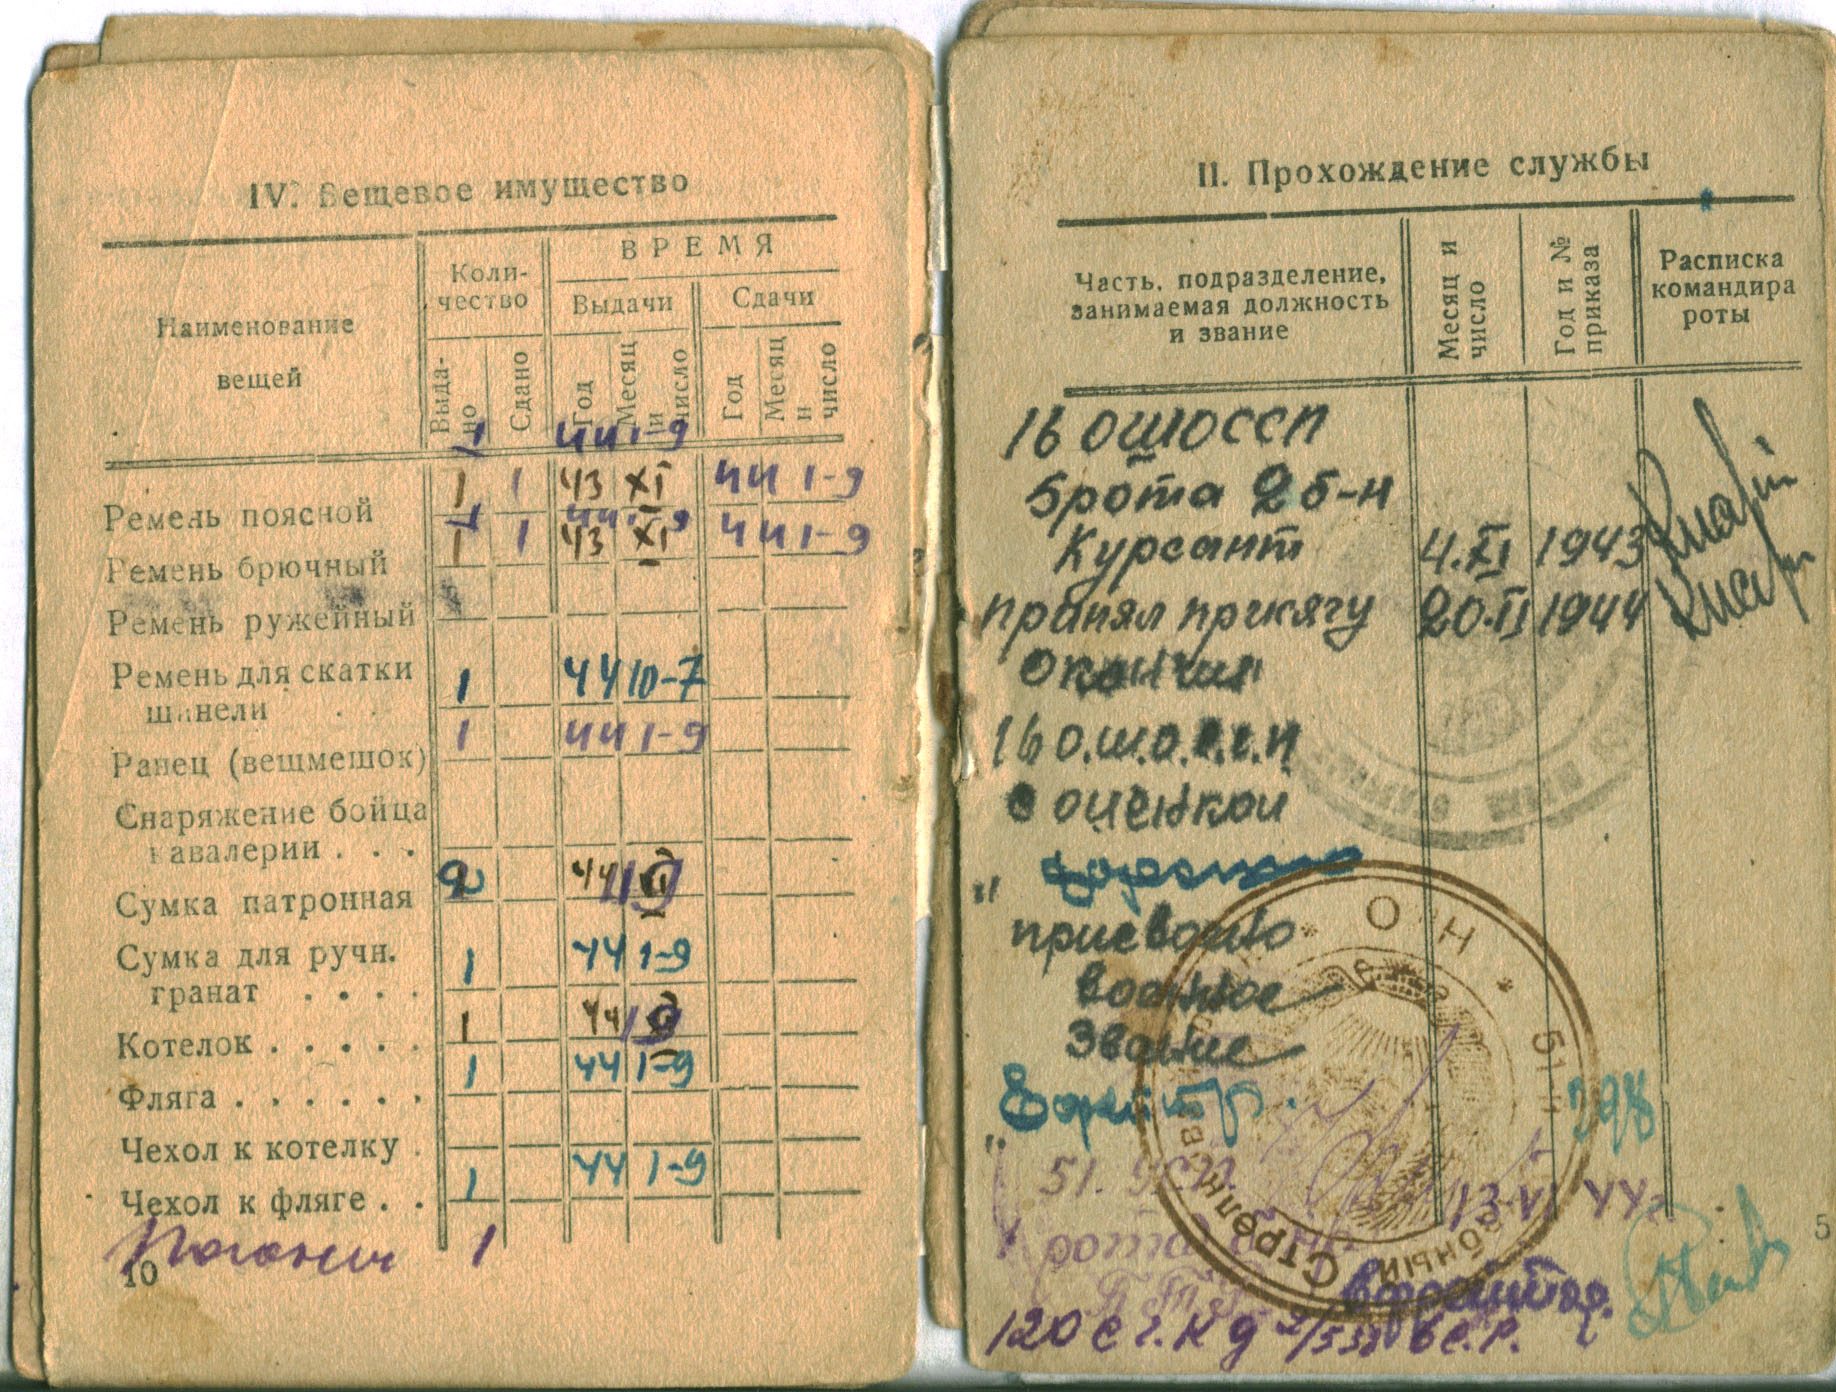 IV. Вещевое имущество
Наименование
вещей
Коли-
чество
ВРЕМЯ
Выдачи
Сдачи
Выда-
но
Сдано
Год
Месяц
и
число
Год
Месяц
и
число
1 44 1-9
Ремень поясной 1 1 43 XI 44 1-9
1 44 1-9
Ремень брючный 1 1 43 XI 44 1-9
Ремень ружейный
Ремень для скатки
шинели 1 44 10-7
Ранец (вещмешок) 1 44 1-9
Снаряжение бойца
кавалерии . . .
Сумка патронная 2 44
Сумка для ручн.
гранат . . . . 1 44 1-9
Котелок . . . . . 1 44
Фляга . . . . . . 1 44 1-9
Чехол к котелку .
Чехол к фляге . . 1 44 1-9
1
10
II. Прохождение службы
Часть, подразделение,
занимаемая должность
и звание
Месяц и
число
Год и №
приказа
Расписка
командира
роты
16 ОШОССП
5 рота 2 б-н
Курсант 4.XI 1943
принял присягу 20.II 1944
окончил
16 о.ш.о.с.с.п
с оценкой
присвоено
военное
звание
Ефрейтор. 398
51.
13 VI 44
рота
П Т Р
ефрейтор.
120 с г. к д
5